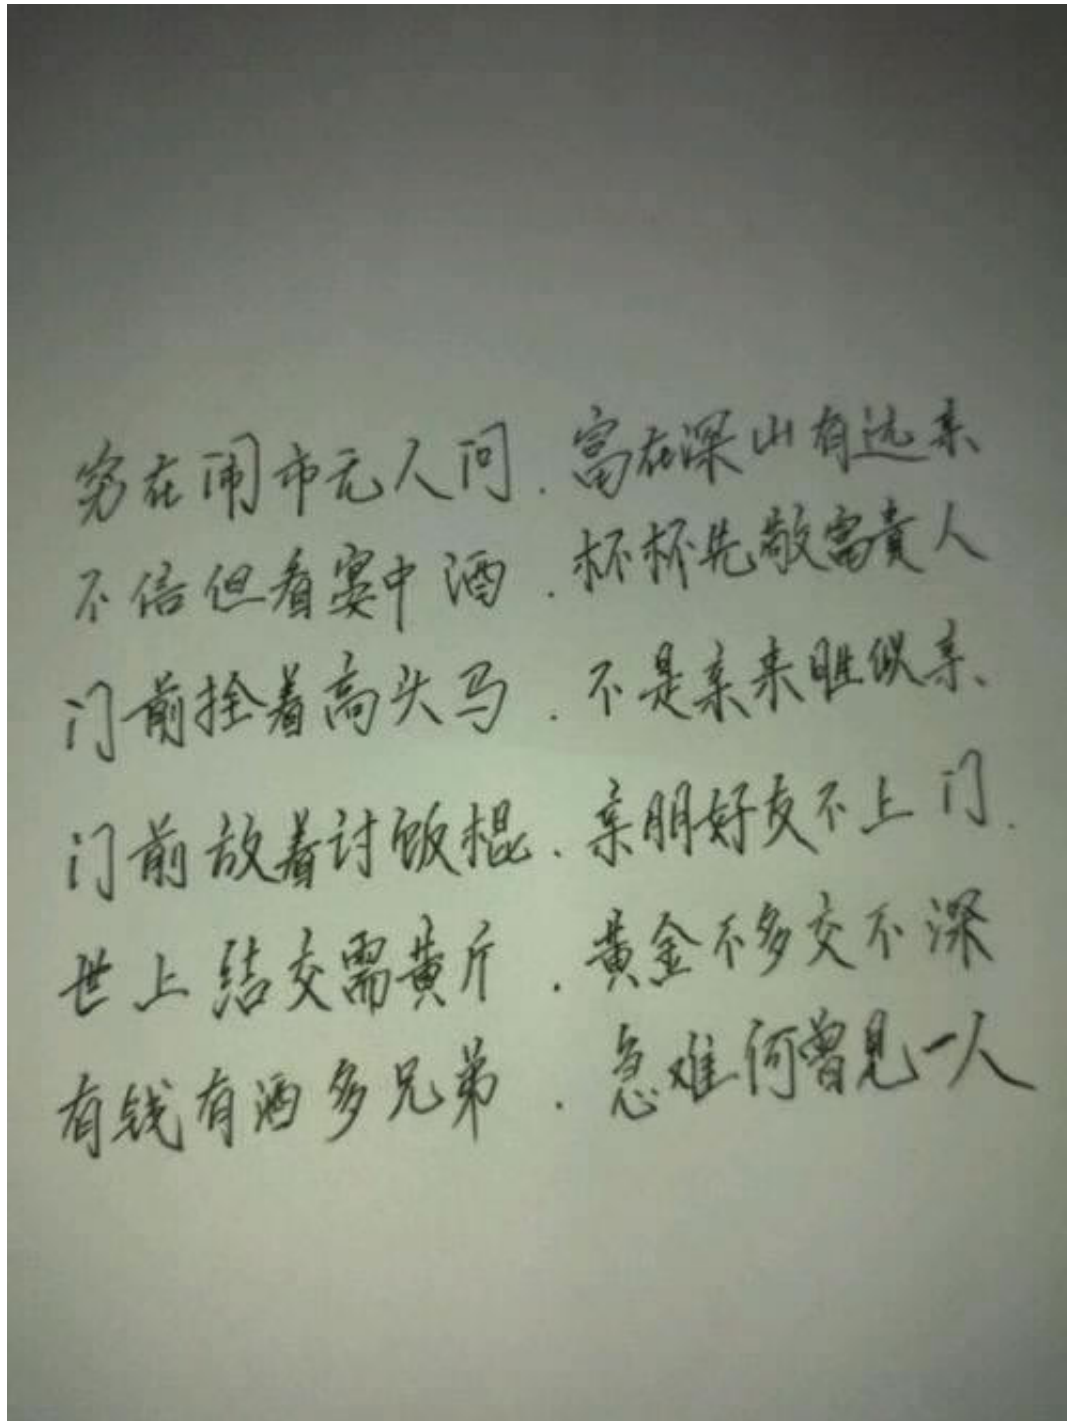 穷在闹市无人问.富在深山有远亲
不信但看宴中酒.杯杯先敬富貴人
门前拴着高头马.不是亲来胜似亲、
门前放着讨饭棍.亲朋好友不上门.
世上结交需黄斤.黄金不多交不深
有钱有酒多兄弟.急难何曾见一人